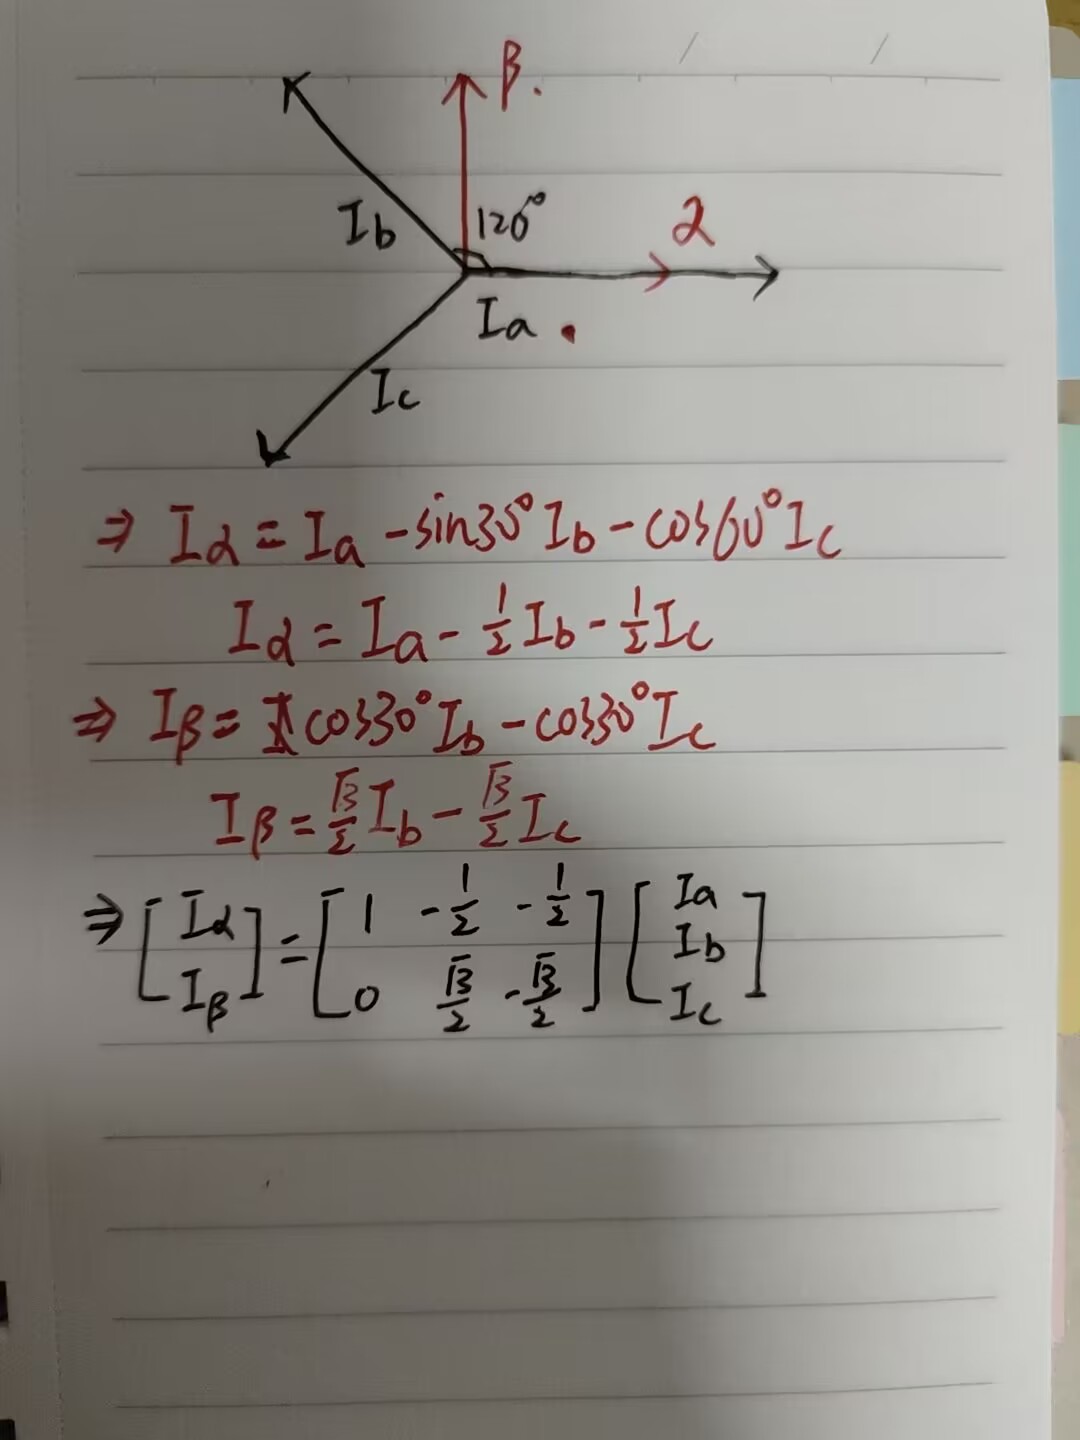 β.
120°
α
Ib
Ia
Ic
⇒ Iα = Ia - sin30° Ib - cos60° Ic
Iα = Ia - 1/2 Ib - 1/2 Ic
⇒ Iβ = cos30° Ib - cos30° Ic
Iβ = √3/2 Ib - √3/2 Ic
⇒ [Iα Iβ] = [1 -1/2 -1/2; 0 √3/2 -√3/2] [Ia Ib Ic]